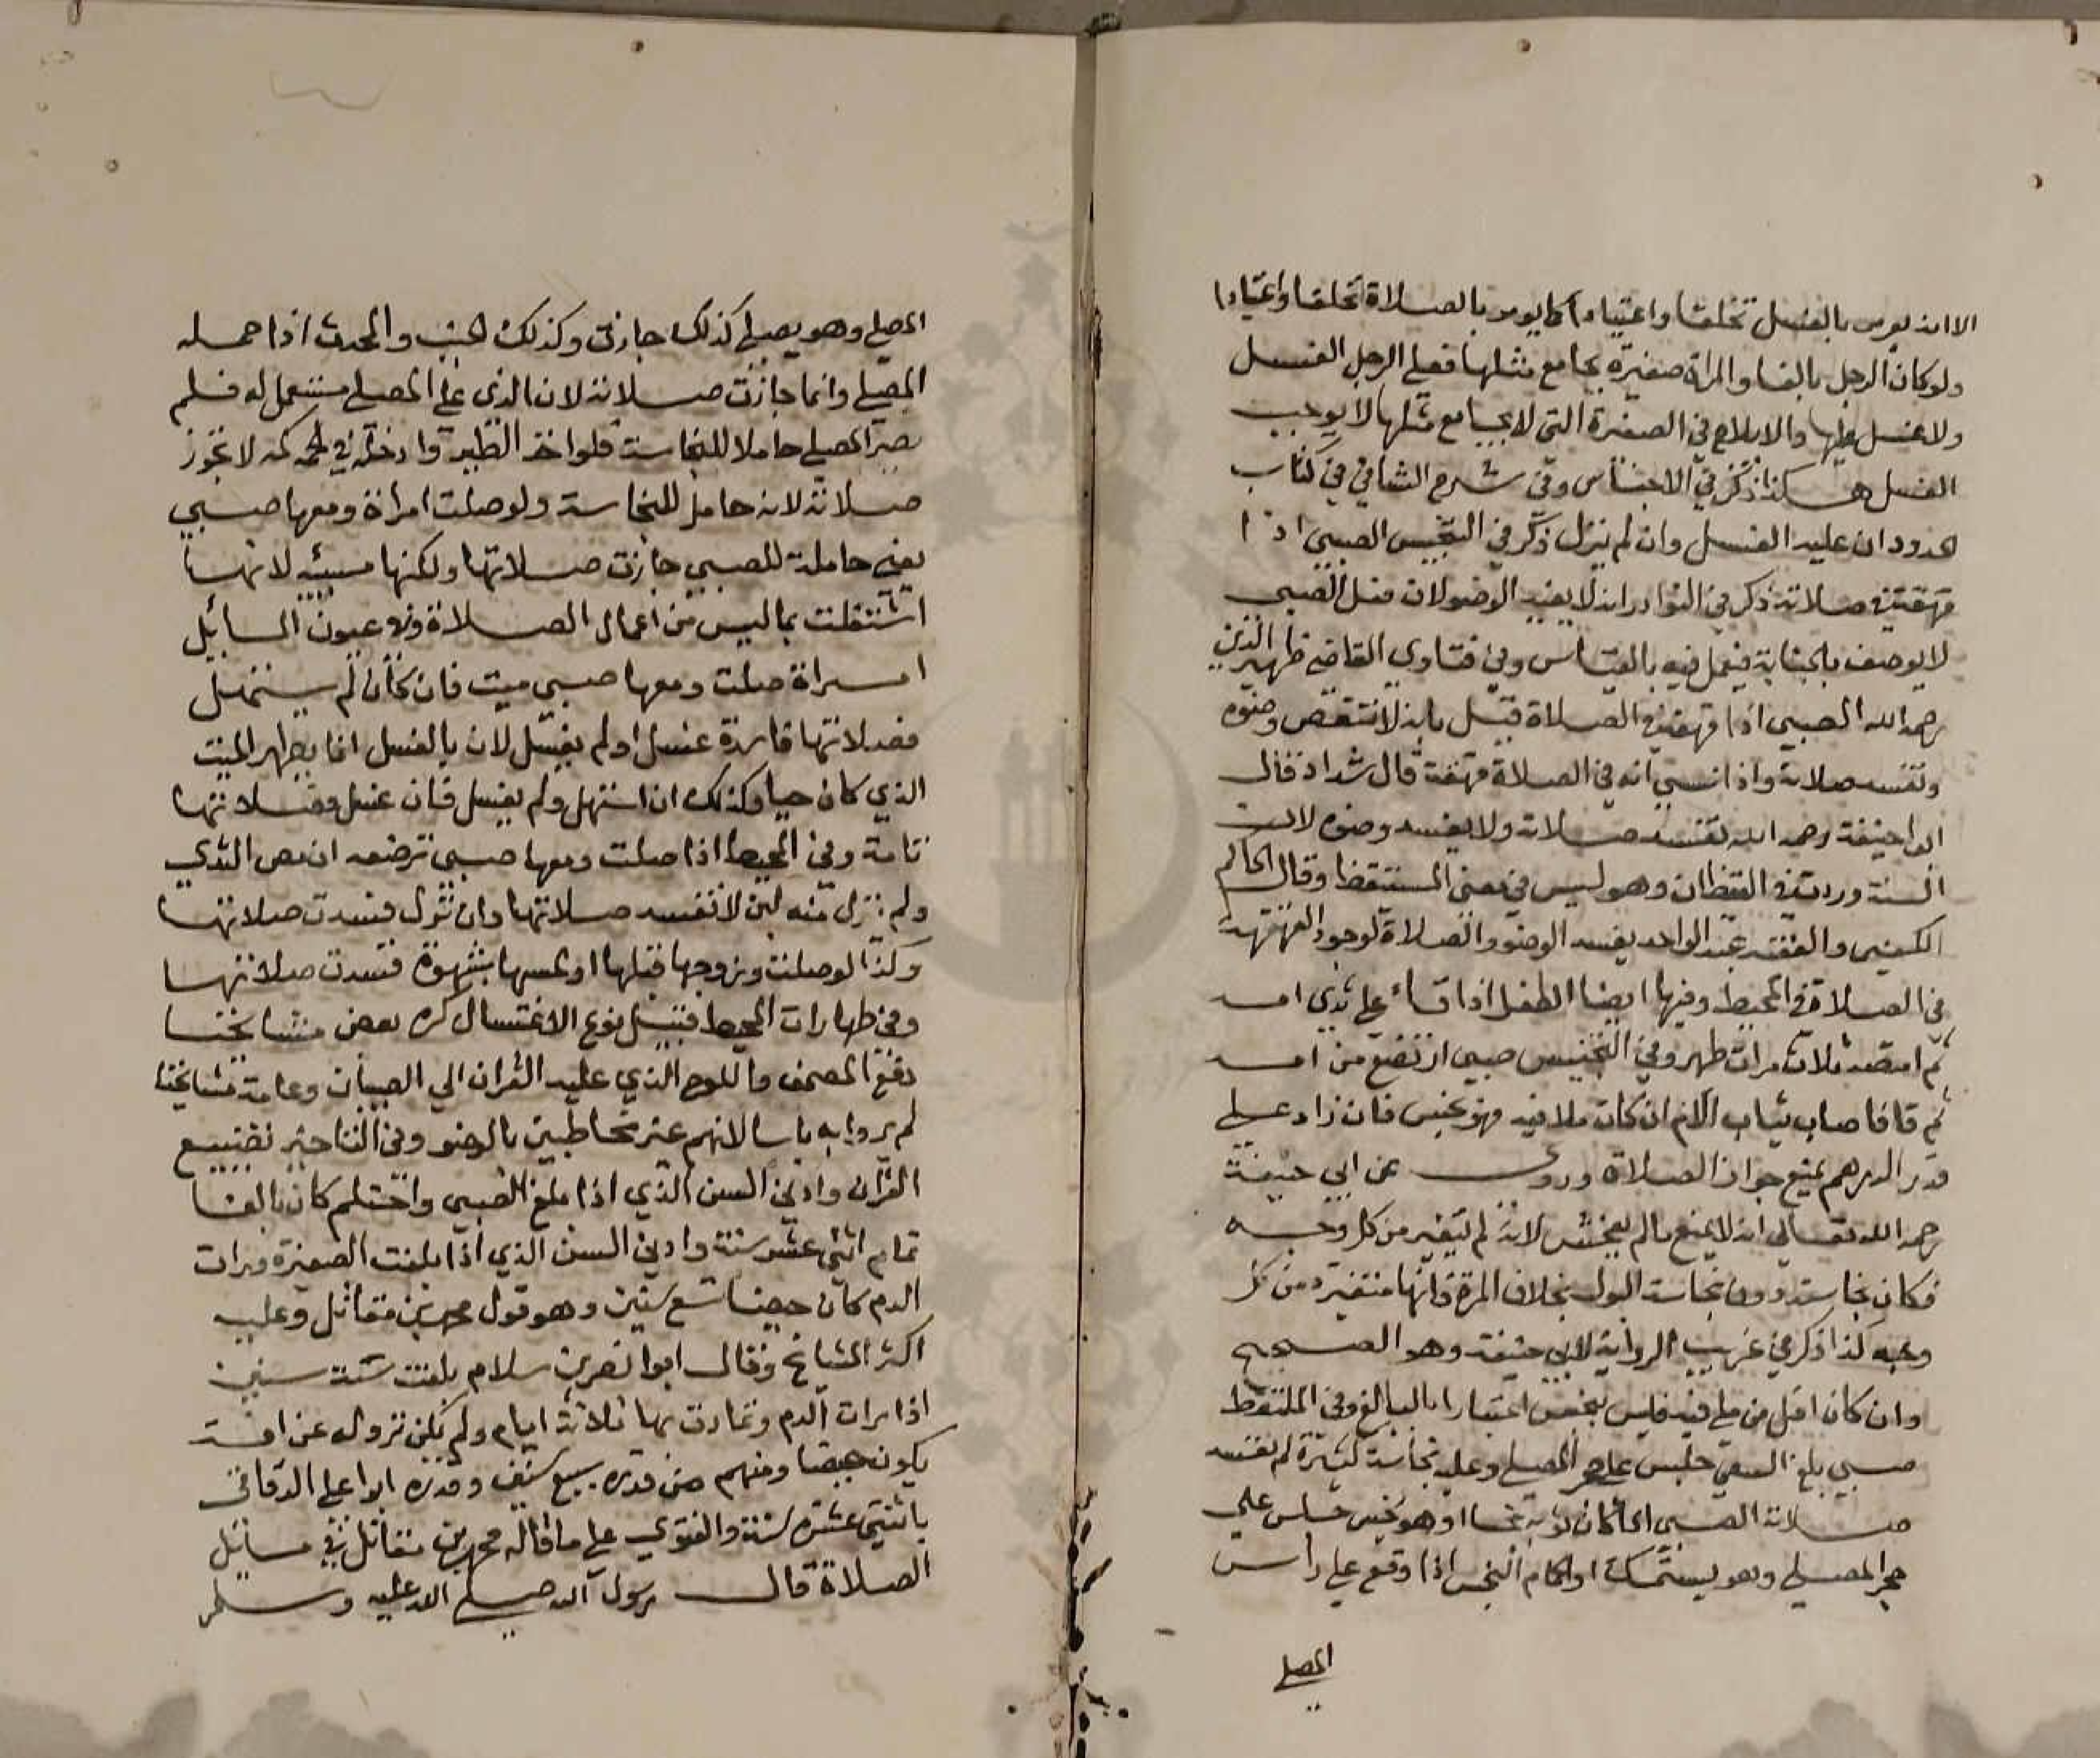 الا انه يومر بالغسل تخلقا واعتيادا كما يومر بالصلاة تخلقا واعتيادا
ولو كان الرجل بالغا والمراة صغيرة يجامع مثلها فعلي الرجل الغسل
ولا غسل عليها والايلاج في الصغيرة التي لا يجامع مثلها لا يوجب
الغسل هكذا ذكر في الاجناس وفي شرح الشافي في كتاب
الحدود ان عليه الغسل وان لم ينزل ذكر في التجنيس الصبي اذا
قهقه في صلاته ذكر في النوادر انه لا يفسد الوضو لان فعل الصبي
لا يوصف بالجناية فيعمل فيه بالقياس وفي فتاوي القاضي ظهير الدين
رحمه الله الصبي اذا قهقه في الصلاة قيل بانه لا تنتقض وضوه
وتفسد صلاته واذا نسي انه في الصلاة فقهقه قال شداد قال
ابو احنيفة رحمه الله تفسد صلاته ولا يفسد وضوه لان
السنة وردت في اليقظان وهو ليس في معني المستيقظ وقال الحاكم
الكفيني والفقيه عبد الواحد يفسد الوضو والصلاة لوجود القهقهة
في الصلاة في المحيط وفيها ايضا الطفل اذا قاء علي ثدي امه
ثم امتصه ثلاث مرات طهر وفي التجنيس صبي ارتضع من امه
ثم قا فاصاب ثياب الام ان كان ملا فيه فهو نجس فان زاد علي
قدر الدرهم يمنع جواز الصلاة وروي عن ابي حنيفة
رحمه الله تعالي انه لا يمنع ما لم يفحش لانه لم يتغير من كل وجه
فكان نجاسته دون نجاسة البول بخلاف المرة فانها متغيرة من كل
وجه كذا ذكر في غريب الرواية لابي حنيفة وهو الصحيح
وان كان اقل من ملي فيه فليس بنجس اعتبارا بالبالغ وفي الملتقط
صبي بلغ السعي جلس علي حجر المصلي وعليه نجاسة كثيرة لم تفسد
صلاته الصبي اذا كان ثوبه نجسا او هو نجس فجلس علي
حجر المصلي وهو يستمسك او الحمام النجس اذا وقع علي راس
المصلي
المصلي وهو يصلي كذلك جازت وكذلك الجنب والمحدث اذا حمله
المصلي وانما جازت صلاته لان الذي علي المصلي مستعمل له فلم
يصر المصلي حاملا للنجاسة فلو اخذ الطير وادخله في كمه لا تجوز
صلاته لانه حامل للنجاسة ولو صلت امراة ومعها صبي
يعني حاملة للصبي جازت صلاتها ولكنها مسيئه لانها
اشتغلت بما ليس من اعمال الصلاة وفي عيون المسائل
امراة صلت ومعها صبي ميت فان كان لم يستهل
فصلاتها فاسدة غسل او لم يغسل لان بالغسل انما يطهر الميت
الذي كان حيا وكذلك ان استهل ولم يغسل فان غسل فصلاتها
تامة وفي المحيط اذا صلت ومعها صبي ترضعه ان مص الثدي
ولم ينزل منه لبن لا تفسد صلاتها وان نزل فسدت صلاتها
وكذا لو صلت وزوجها قبلها او لمسها بشهوة فسدت صلاتها
وفي طهارات المحيط قبيل نوع الاغتسال كره بعض مشايخنا
دفع المصحف واللوح الذي عليه القران الي الصبيان وعامة مشايخنا
لم يروا به باسا لانهم غير مخاطبين بالوضو وفي التاخير تضييع
القران وادني السن الذي اذا بلغ الصبي واحتلم كان بالغا
تمام اثني عشر سنة وادني السن الذي اذا بلغت الصغيرة ورات
الدم كان حيضا تسع سنين وهو قول محمد بن مقاتل وعليه
اكثر المشايخ وقال ابو انصر بن سلام بلغت ستة سنين
اذا رات الدم وتمادت بها ثلاثة ايام ولم يكن نزوله عن افة
يكون حيضا ومنهم من قدره بسبع سنين وقدره ابوا علي الدقاق
باثنتي عشرة سنة والفتوي علي ما قاله محمد بن مقاتل في مسائل
الصلاة قال رسول الله صلي الله عليه وسلم